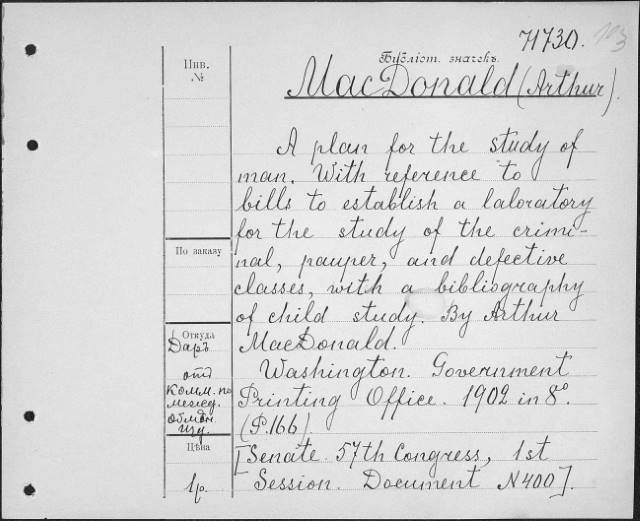 71730. 103
Библіот. значекъ.
Инв.
№
MacDonald (Arthur).
A plan for the study of
man. With reference to
bills to establish a laboratory
for the study of the crimi-
nal, pauper, and defective
classes, with a bibliography
of child study. By Arthur
MacDonald.
Washington. Government
Printing Office. 1902 in 8°.
(P. 166).
[Senate 57th Congress, 1st
Session. Document N 400].
По заказу
Откуда
Даръ
отъ
Комм. по
межд.
обмѣн.
изд.
Цѣна
1р.